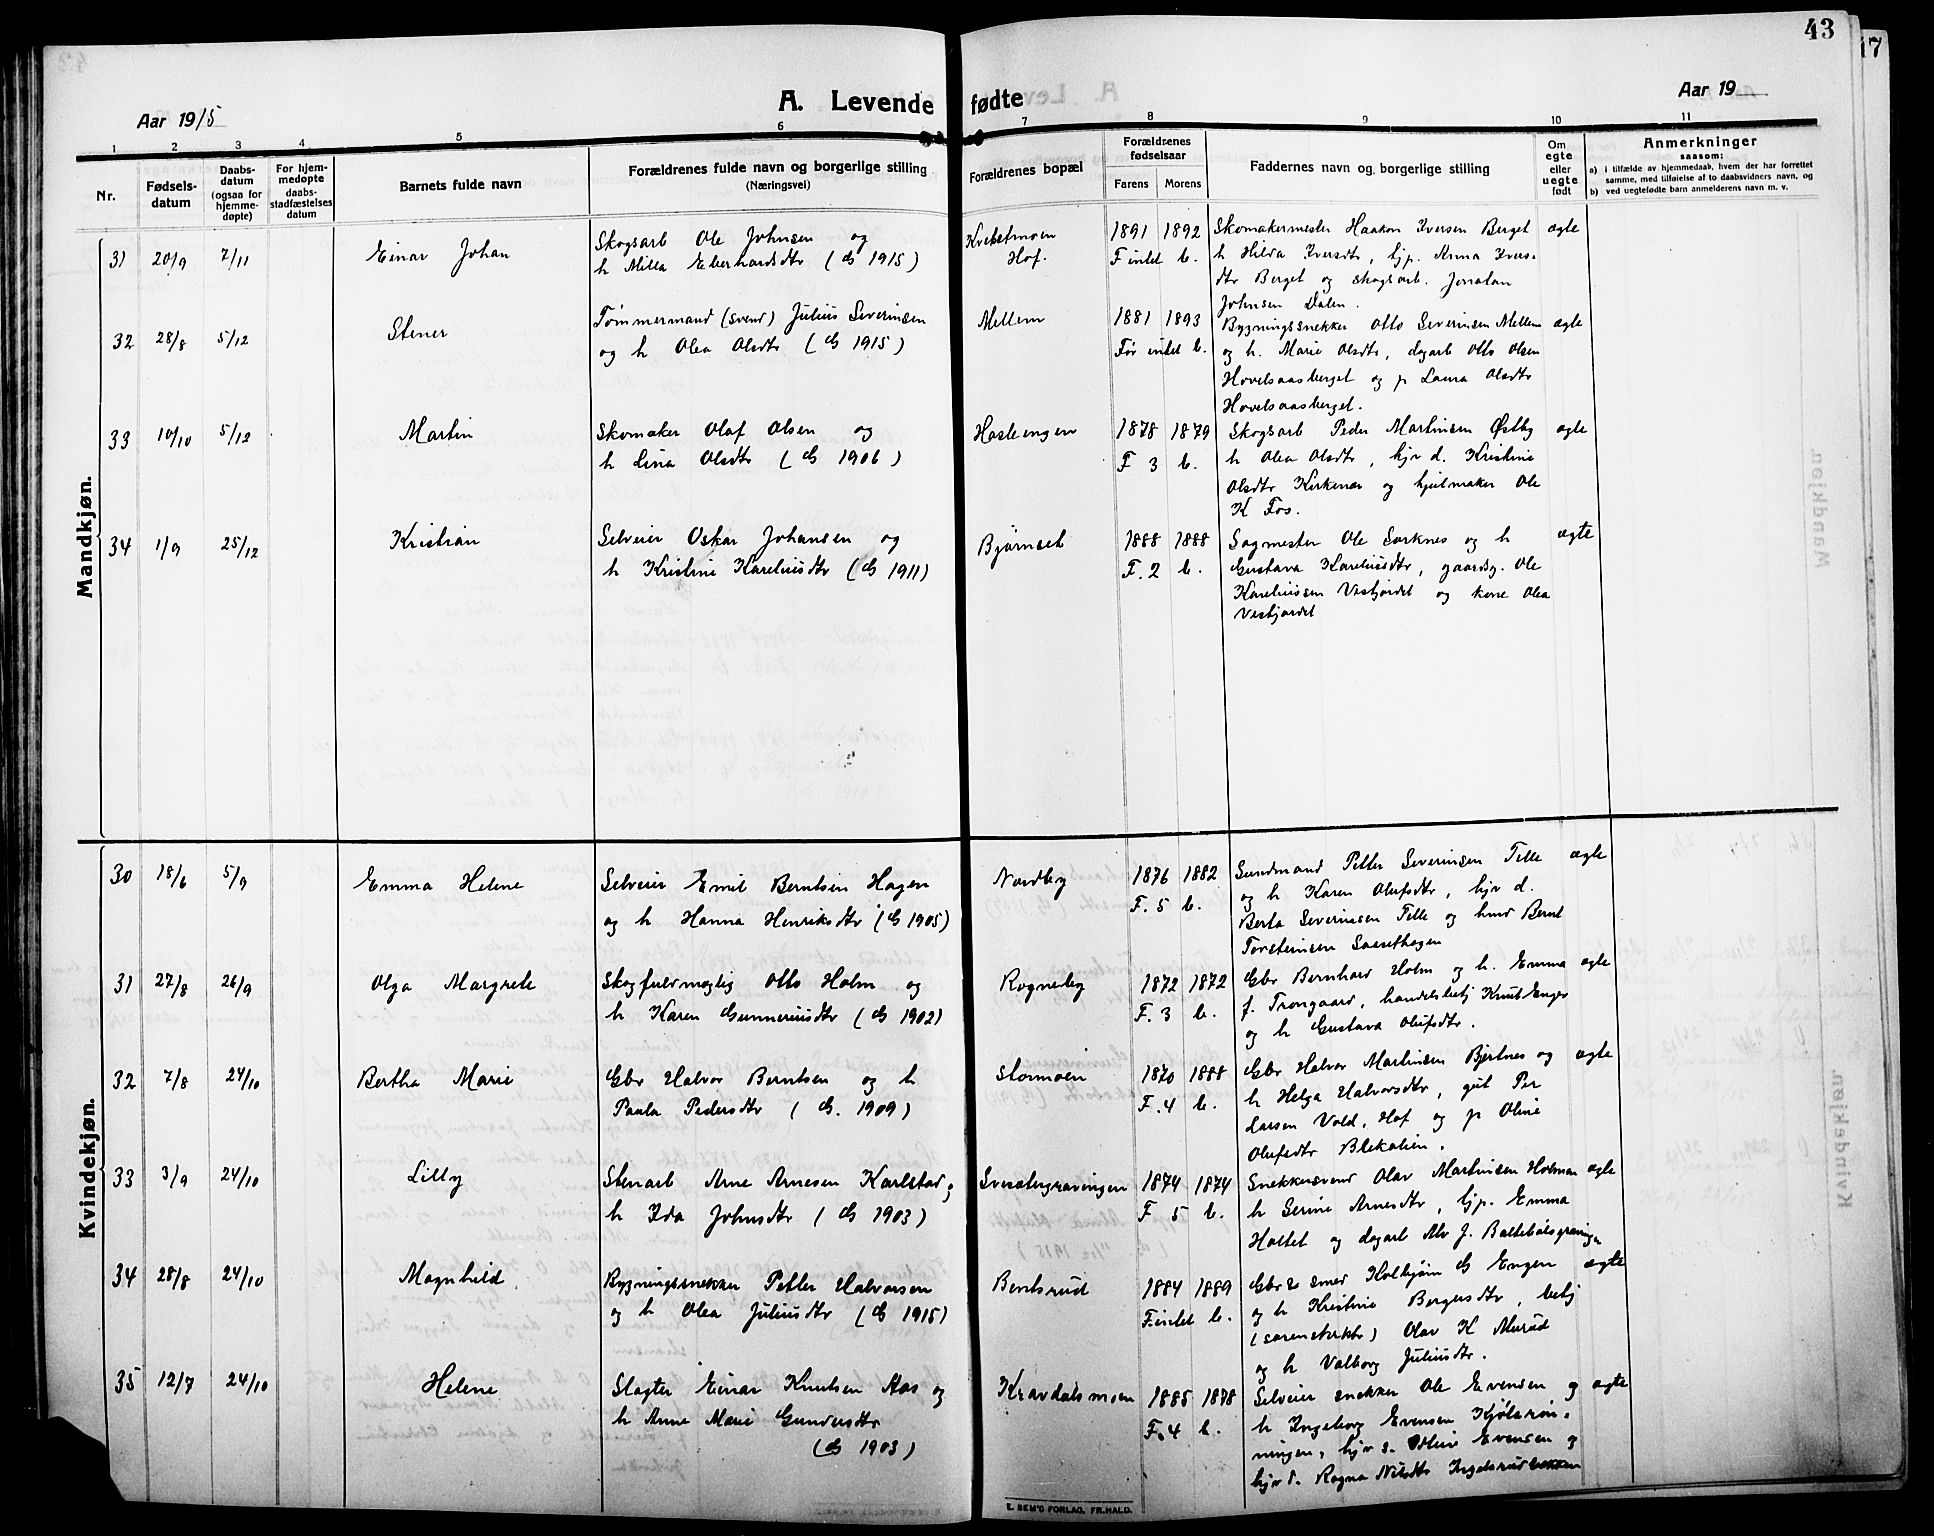 43
17
A. Levende fødte
Aar 1915
Aar 19
1 2 3 4 5 6 7 8 9 10 11
Nr.
Fødsels-
datum
Daabs-
datum
(ogsaa for
hjemme-
døpte)
For hjem-
medøpte
daabs-
stadfæstelses
datum
Barnets fulde navn
Forældrenes fulde navn og borgerlige stilling
(Næringsvei)
Forældrenes bopæl
Forældrenes
fødselsaar
Farens Morens
Faddernes navn og borgerlige stilling
Om
egte
eller
uegte
født
Anmerkninger
saasom:
a) i tilfælde av hjemmedaab, hvem der har forrettet
samme, med tilføielse af to daabsvidners navn, og
b) ved uegtefødte barn anmelderens navn m. v.
Mandkjøn.
31 20/9 7/11 Einar Johan
Skogsarb Ole Johnsen og
h Milla Eberhardsdtr (G 1915)
Kvebetmoen
Hof.
1891 1892
F intet b.
Skomakermester Haakon Iversen Berget
h Hilda Iversdtr, hjp. Anna Ivers-
dtr Berget og skogsarb. Jonatan
Johnsen Dalen.
ægte
32 28/8 5/12 Stener
Tømmermand (svend) Julius Severinsen
og h Olea Olsdtr (G 1915)
Mellem
1881 1893
Før intet b.
Bygningssnekker Otto Severinsen Mellem
og h. Marie Olsdtr, dagarb Otto Olsen
Hovelsaasberget og p Laura Olsdtr
Hovelsaasberget.
ægte
33 10/10 5/12 Martin
Skomaker Olaf Olsen og
h Lina Olsdtr (G 1906)
Hasleengen
1878 1879
F 3 b.
Skogsarb Peder Martinsen Østby
h Olea Olsdtr, hjv d. Kristine
Olsdtr Kirkenær og hjulmaker Ole
K Fos.
ægte
34 1/9 25/12 Kristian
Selveier Oskar Johansen og
h Kristine Kareliusdtr (G 1911)
Bjørnset
1888 1888
F. 2 b.
Sagmester Ole Sorknes og h
Gustava Kareliusdtr, gaardsg. Ole
Kareliussen Vestjordet og kone Olea
Vestjordet
ægte
Kvindekjøn.
30 18/6 5/9 Emma Helene
Selveier Emil Berntsen Hagen
og h Hanna Henriksdtr (G 1905)
Nordby
1876 1882
F. 5 b.
Sundmand Petter Severinsen Telle
og h Karen Olufsdtr, hjv d.
Berta Severinsen Telle og hmd Bernt
Torsteinsen Saasethagen
ægte
31 27/8 26/9 Olga Margrete
Skogfuldmægtig Otto Holm og
h Karen Gunneriusdtr (G 1902)
Rogneby
1872 1872
F. 3 b.
Gbr Bernhard Holm og h. Emma
f. Trongaard, handelsbetj Knut Enger
og h Gustava Olufsdtr.
ægte
32 7/8 24/10 Bertha Marie
Gbr Halvor Berntsen og h
Paula Pedersdtr (G. 1909)
Stormoen
1870 1888
F. 4 b.
Gbr Halvor Martinsen Bjertnes og
h Helga Halvorsdtr, gut Per
Larsen Vold, Hof og p Oline
Olufsdtr Blekalien.
ægte
33 3/9 24/10 Lilly
Stenarb Arne Arnesen Karlstad,
h Ida Johnsdtr (G 1903)
Svenkergravingen
1874 1874
F 5 b.
Snekkersvend Olav Martinsen Holman
h Serine Arnesdtr, hjp. Emma
Holtet og dagarb Alv J. Baltebølsgraving
ægte
34 28/8 24/10 Magnhild
Bygningssnekker Petter Halvorsen
og h Olea Juliusdtr (G 1915)
Bentsrud
1884 1889
F. intet b.
Gbr & smed Kolbjørn G Engen
og h Kristine Bergersdtr, betj
Olav K Murud
og h Valborg Juliusdtr.
ægte
35 12/7 24/10 Helene
Slagter Einar Knutsen Aas og
h Anne Marie Gundersdtr
(G 1903)
Kravdalsmoen
1885 1878
F. 4 b.
Selveier snekker Ole Evensen og
h Ingeborg Evensen Kjølarøn-
ningen, hjv s. Evensen og
hjv d. Ragna Nilsdtr Ingelsrudbakken
ægte
E. SEM'S FORLAG, FR.HALD.